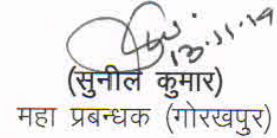 13.11.19
(सुनील कुमार)
महा प्रबन्धक (गोरखपुर)